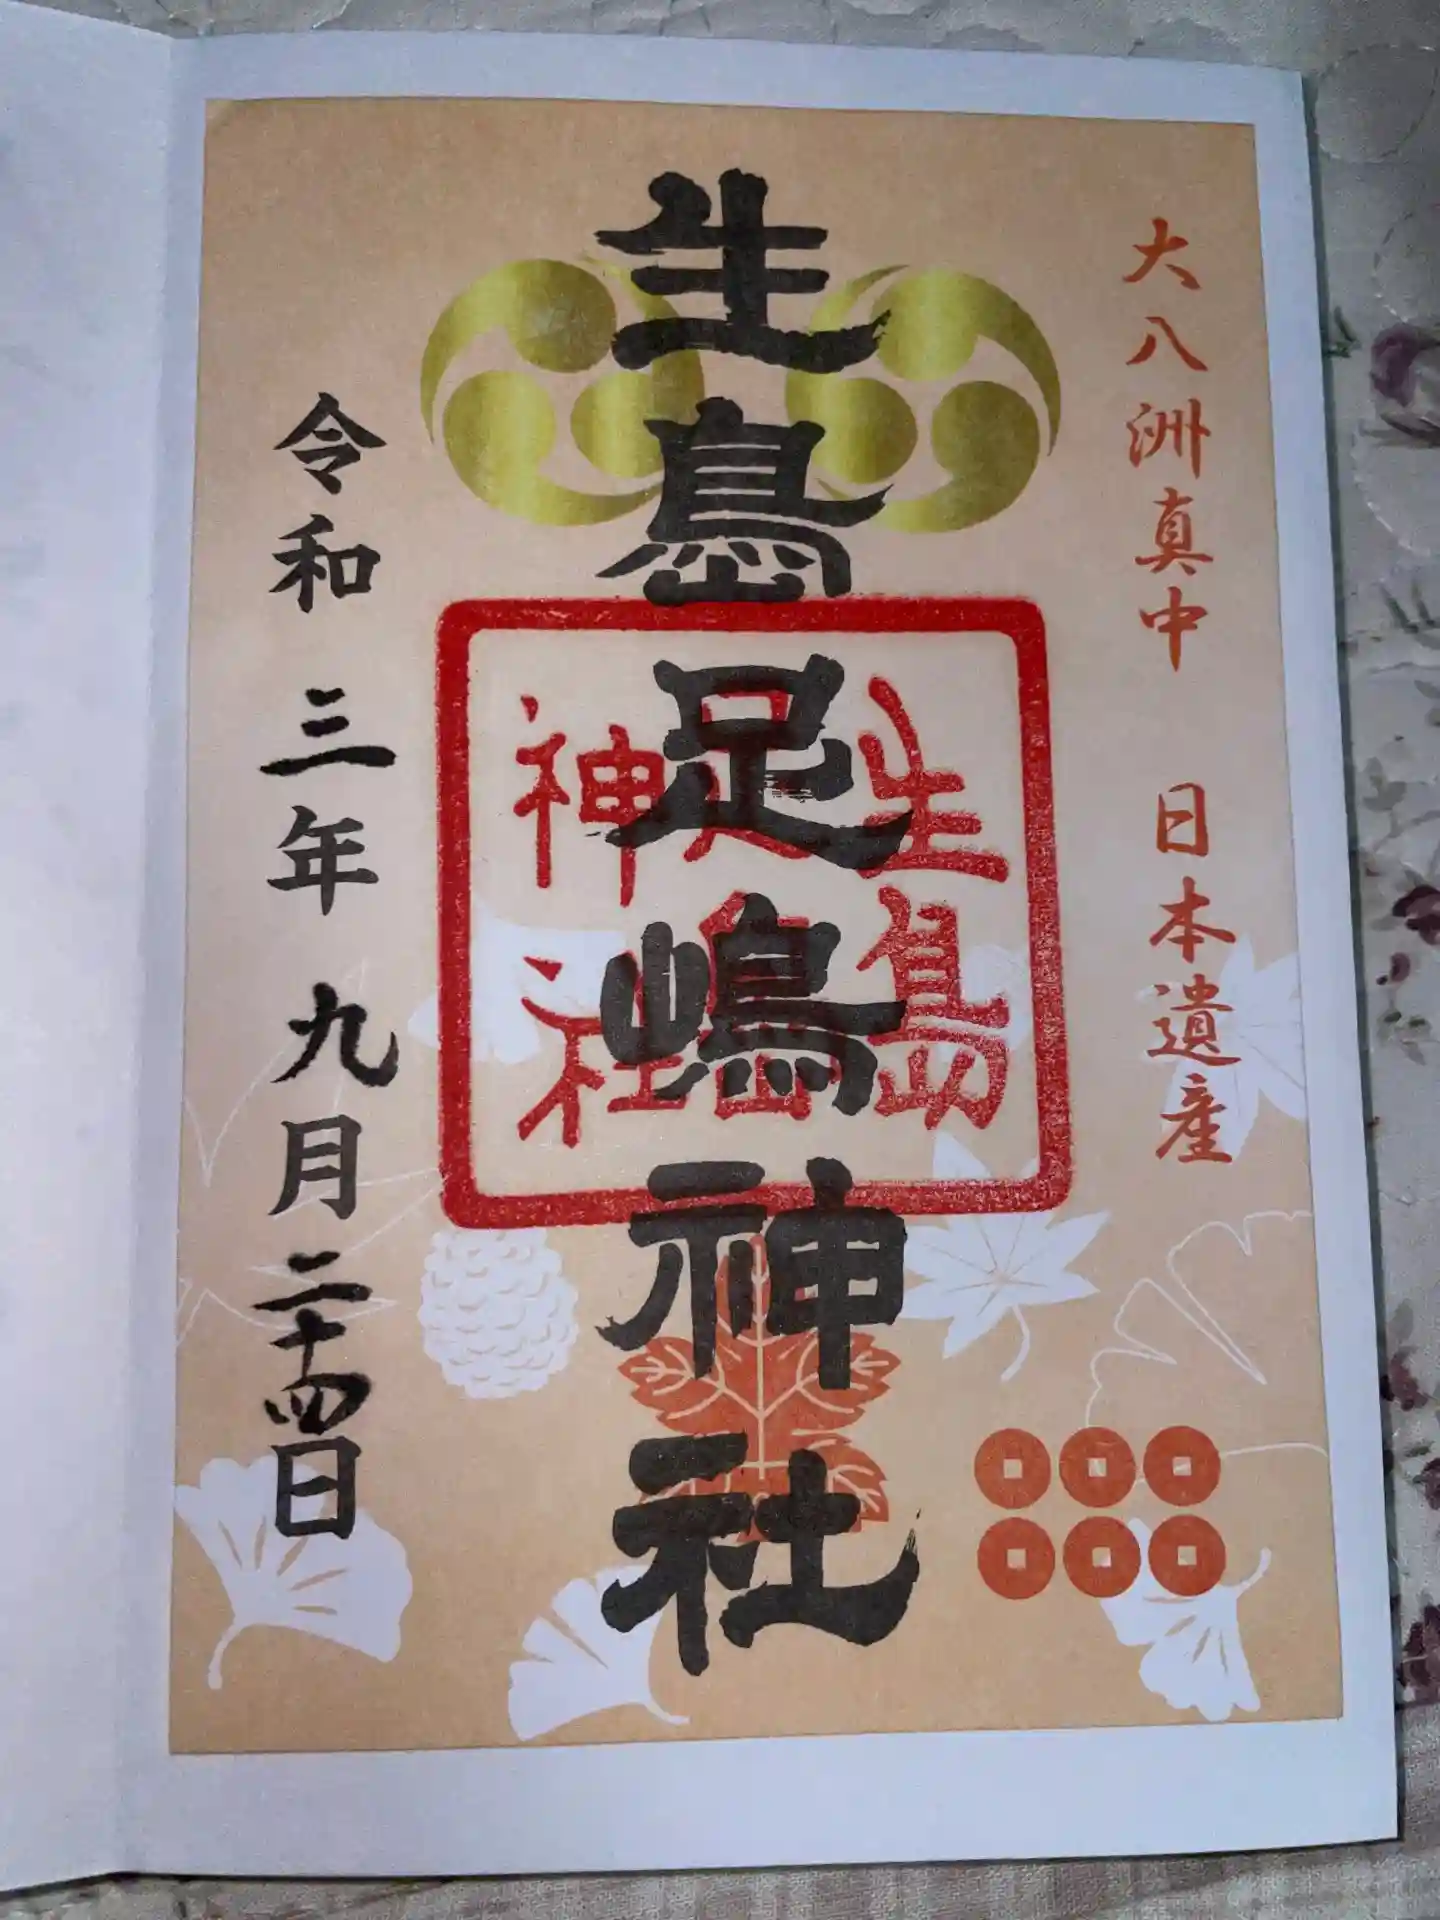 大八洲真中　日本遺産
生島足嶋神社
生島
足島
神社
令和三年九月二十四日